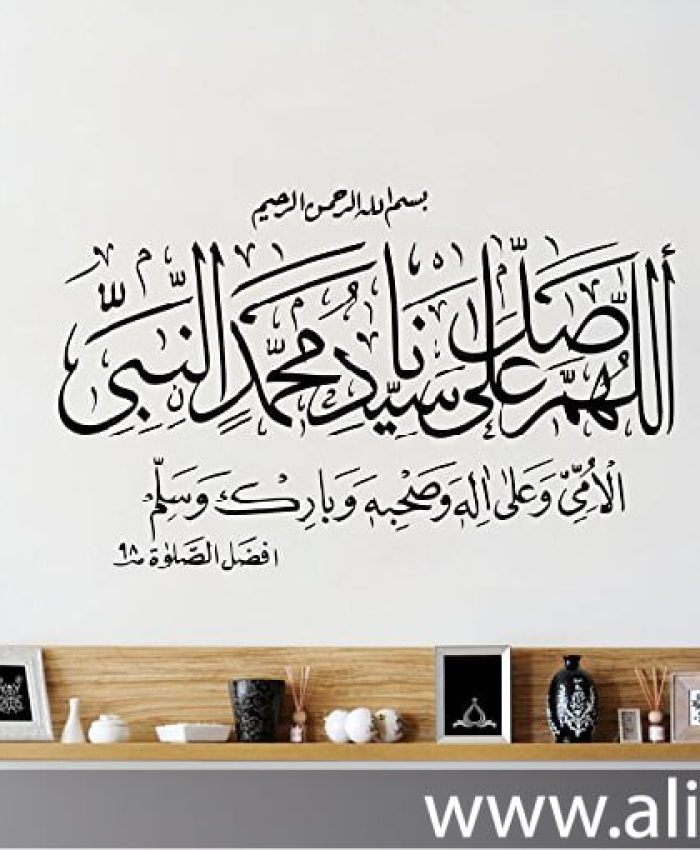 بسم الله الرحمن الرحيم
أللهم صل على سيدنا محمد النبي
الأمي وعلى اله وصحبه وبارك وسلم
افضل الصلوة ص ٩٨
www.ali